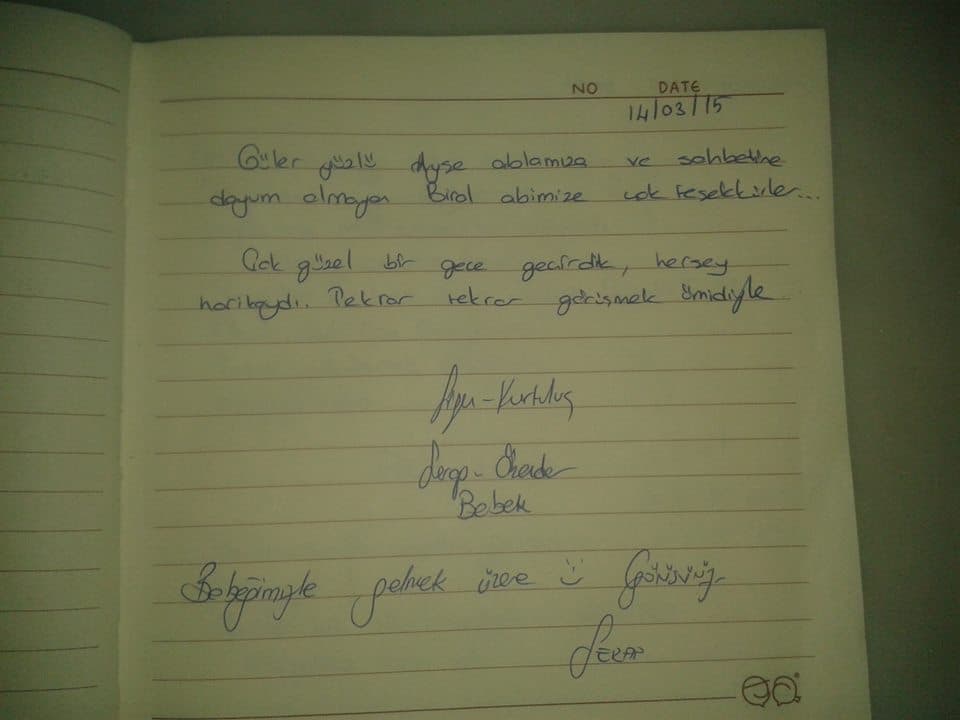 NO DATE
14/03/15
Güler yüzlü Ayşe ablamıza ve sohbetine
doyum olmayan Birol abimize çok teşekkürler...
Çok güzel bir gece geçirdik, herşey
harikaydı. Tekrar tekrar görüşmek ümidiyle
Kurtuluş
Serap -
Bebek
Bebeğimiyle gelmek üzere Görüşürüz
SERAP